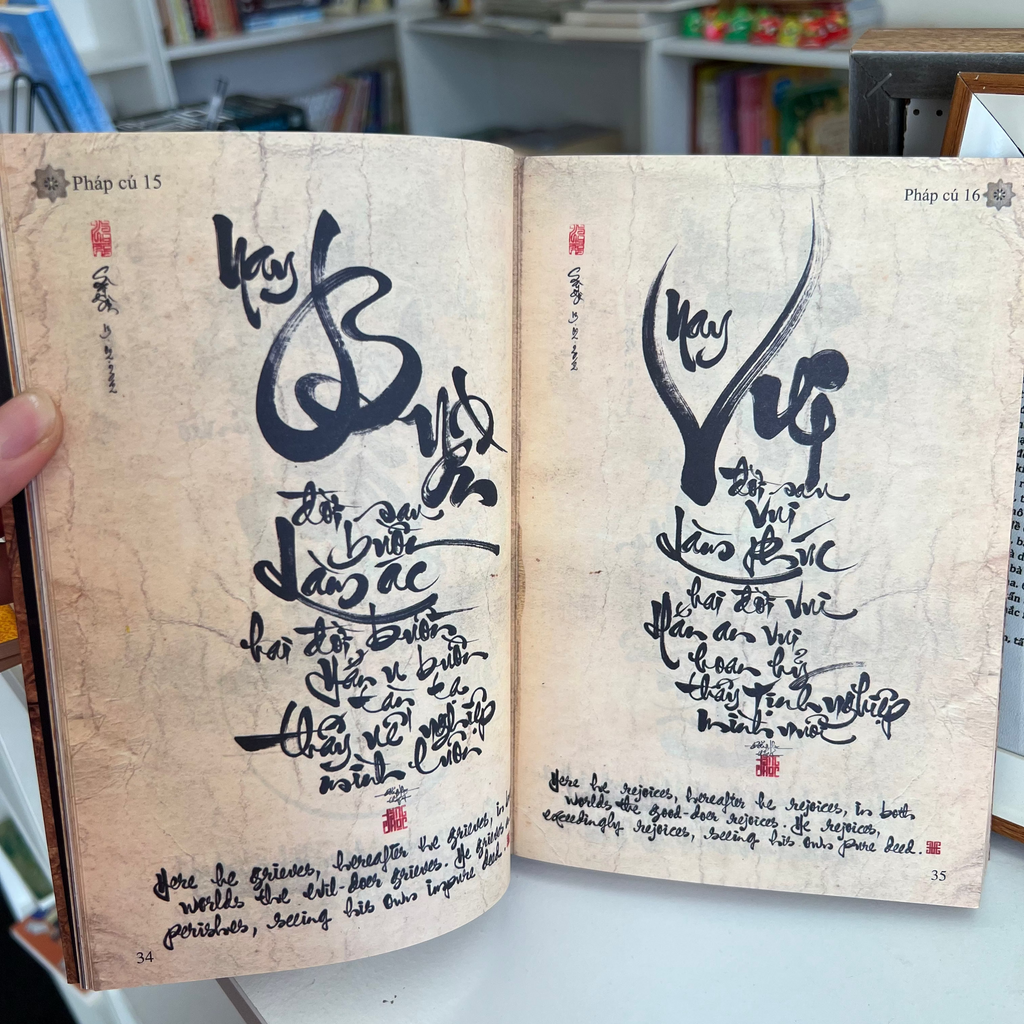 Pháp cú 15
Nay
Buồn
đời sau
buồn
Làm ác
hai đời, buồn
Hắn u buồn
tàn tạ
thấy uế nghiệp
mình luôn
Here he grieves, hereafter he grieves, in
worlds the evil-doer grieves. He grieves
perishes, seeing his own impure deed.
34
Pháp cú 16
Nay
Vui
đời sau
vui
Làm phúc
hai đời vui
Hắn an vui
hoan hỷ
thấy Tịnh nghiệp
mình
Here he rejoices, hereafter he rejoices, in both
worlds the good-doer rejoices. He rejoices,
exceedingly rejoices, seeing his own pure deed.
35